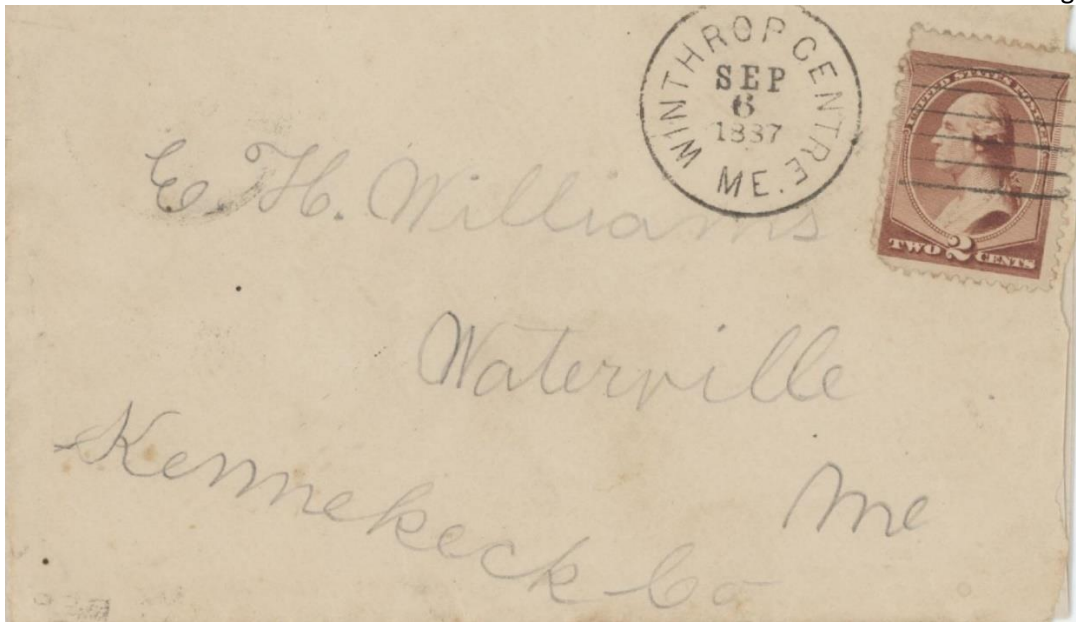 WINTHROP CENTRE
SEP
6
1887
ME.
UNITED STATES POSTAGE
TWO 2 CENTS
E. H. Williams
Waterville
Me
Kennekeck Co